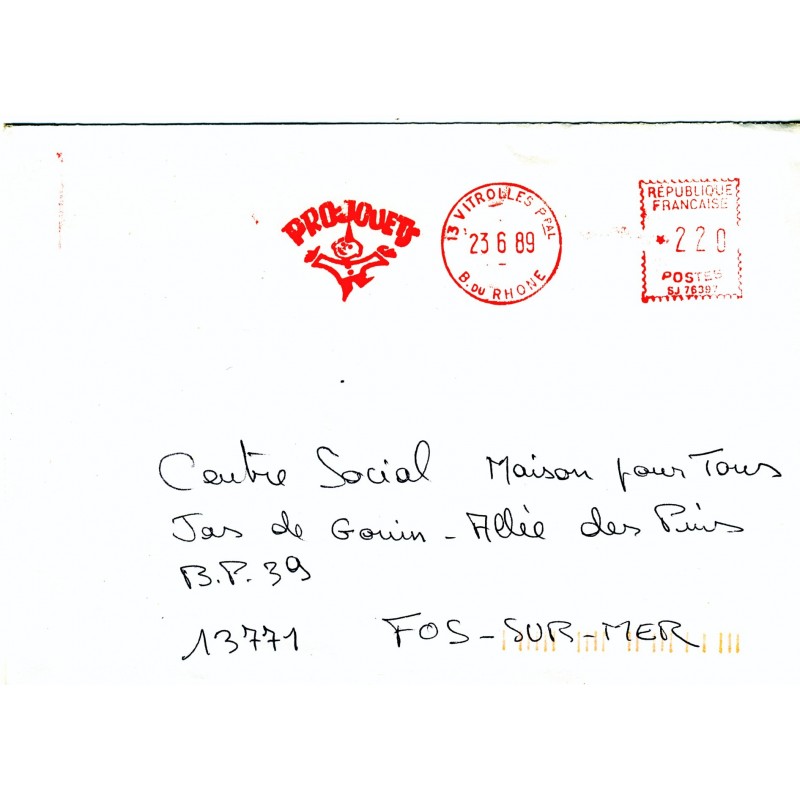 PRO-JOUETS
13 VITROLLES PPAL
23 6 89
B. DU RHONE
RÉPUBLIQUE
FRANCAISE
★ 220
POSTES
SJ 76397
Centre Social Maison pour Tous
Jas de Gouin - Allée des Pins
B.P. 39
13771 FOS-SUR-MER